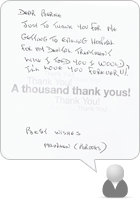 DEAR
JUST TO THANK YOU FOR ME
GETTING TO EALING HOSPITAL
FOR MY DENTAL TREATMENT
WHO I TOLD YOU I WOULD
I'LL LOVE YOU FOREVER!!!
Thank You!
A thousand thank yous!
Thank You!
BEST WISHES